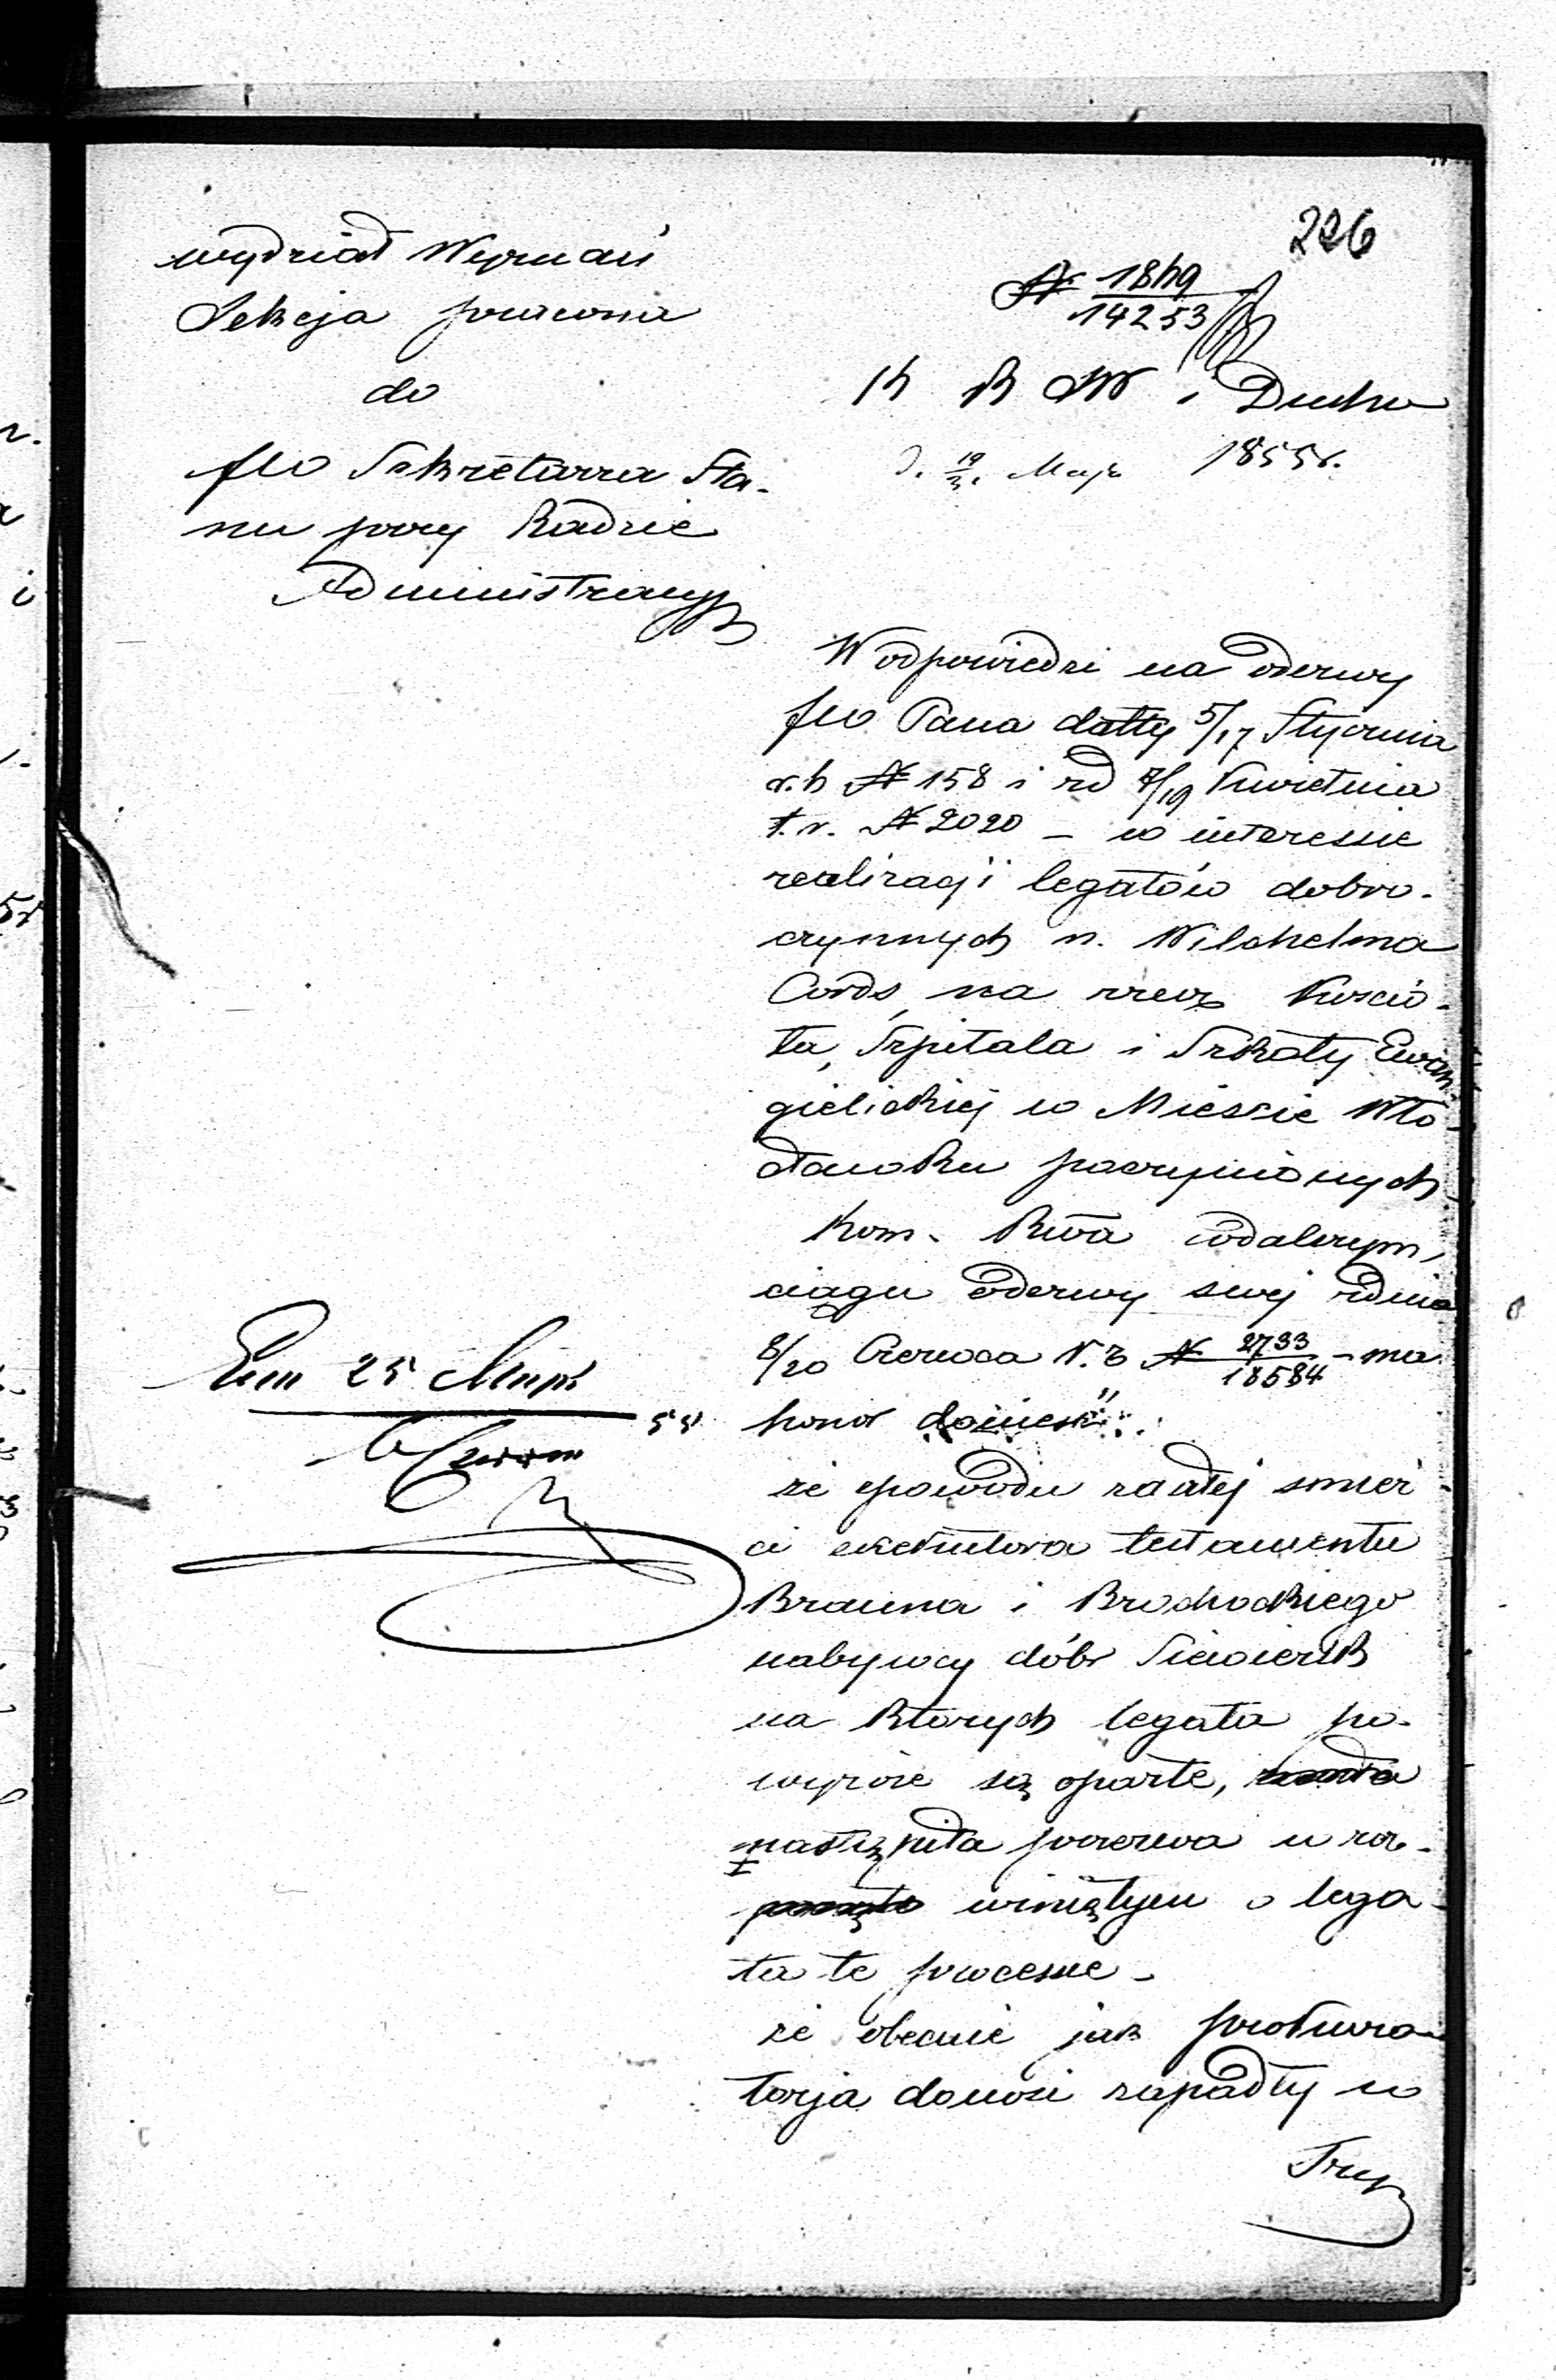 226
Wydział Wyznań
Sekcja prawna
do
JW Sekretarza Sta-
nu przy Radzie
Administracyj
N 1849
14253
K R SW i Duchu
D. 19/31 Maja 1855 r.
W odpowiedzi na odezwy
JW Pana datty 5/17 Stycznia
r. b N 158 i zd 7/19 Kwietnia
t. r. N 2020 – w interessie
realizacji legatów dobro-
czynnych n. Wilchelma
Cords, na rzecz Koscio-
ła, Szpitala i Szkoły Ewan-
gielickiej w Mieście Wło-
cławku poczynionych
Kom. Rwa wdalszym
ciągu odezwy swej zdnia
8/20 Czerwca N. 2733
18584 – ma
honor donieść:
że zpowodu zaszłej śmier-
ci exekutora testamentu
Brauna i Brochockiego
nabywcy dóbr Siewiersk
na których legata po-
wyższe są oparte,
nastąpiła przerwa w roz-
winiętym o lega-
ta te procesie –
że obecnie jak prokura-
torja donosi zapadły w
Tryb
Exp 25 Maja
6 Czerw 55